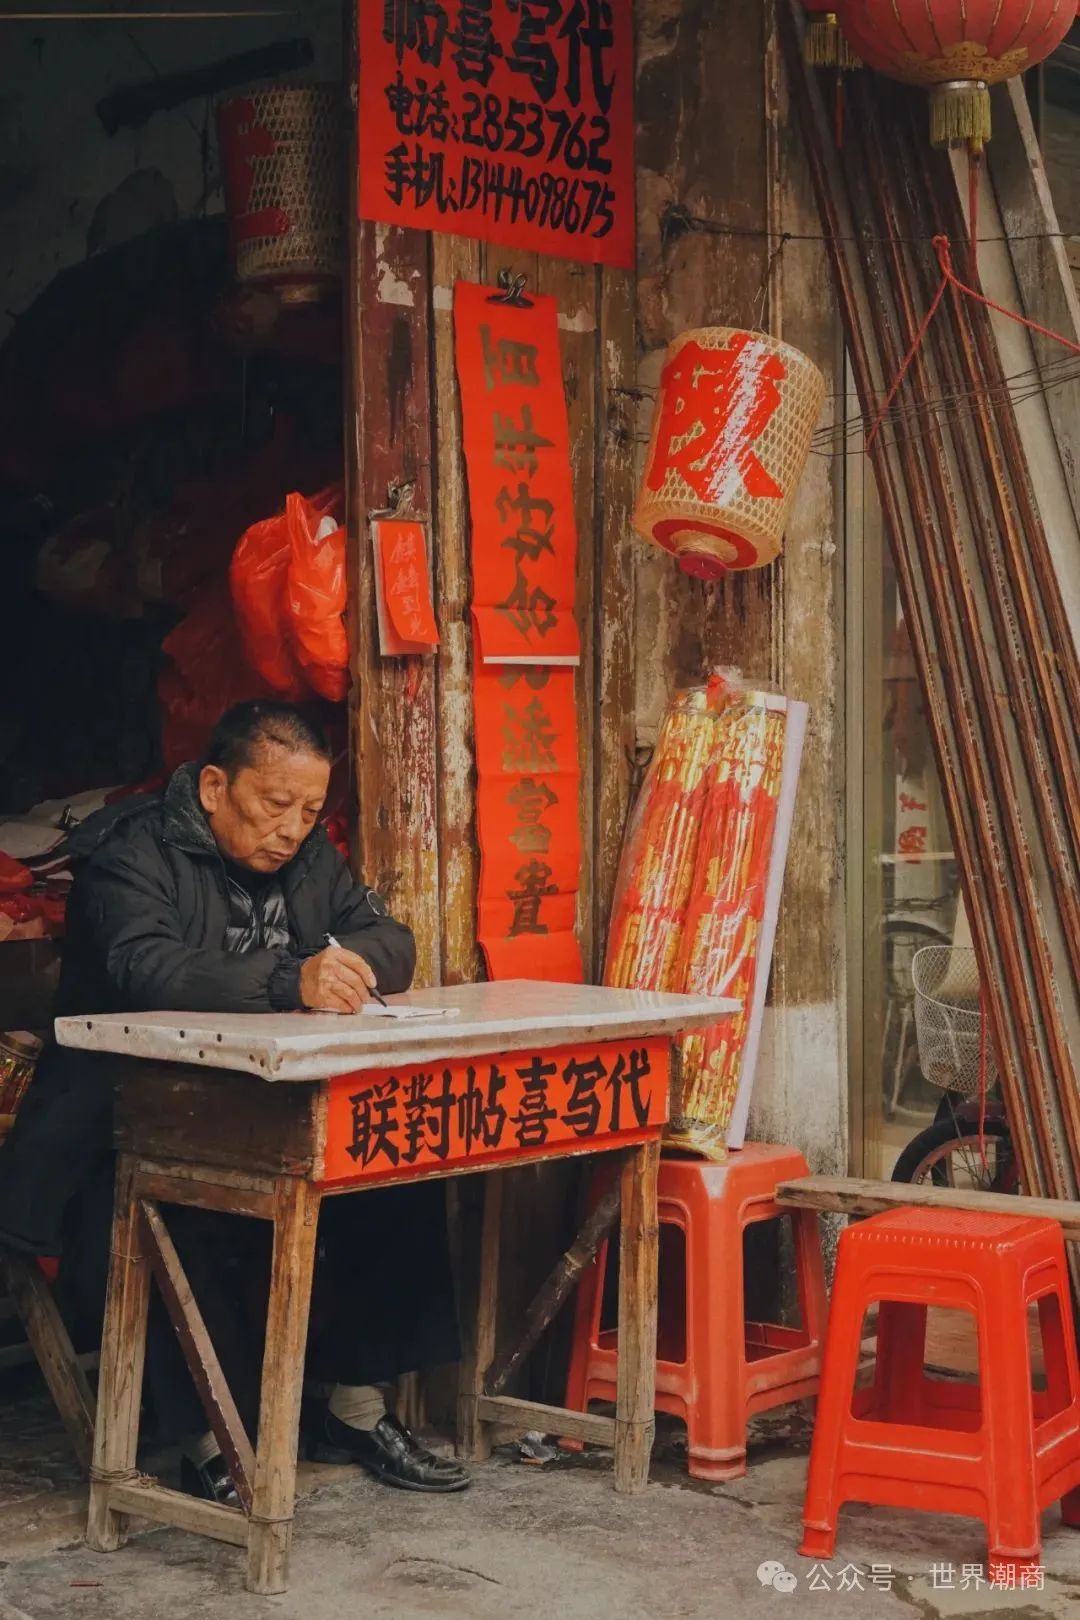 帖喜写代
电话:2853762
手机:13144098675
百年好合
添富贵
麒麟到此
陳
联對帖喜写代
公众号 · 世界潮商